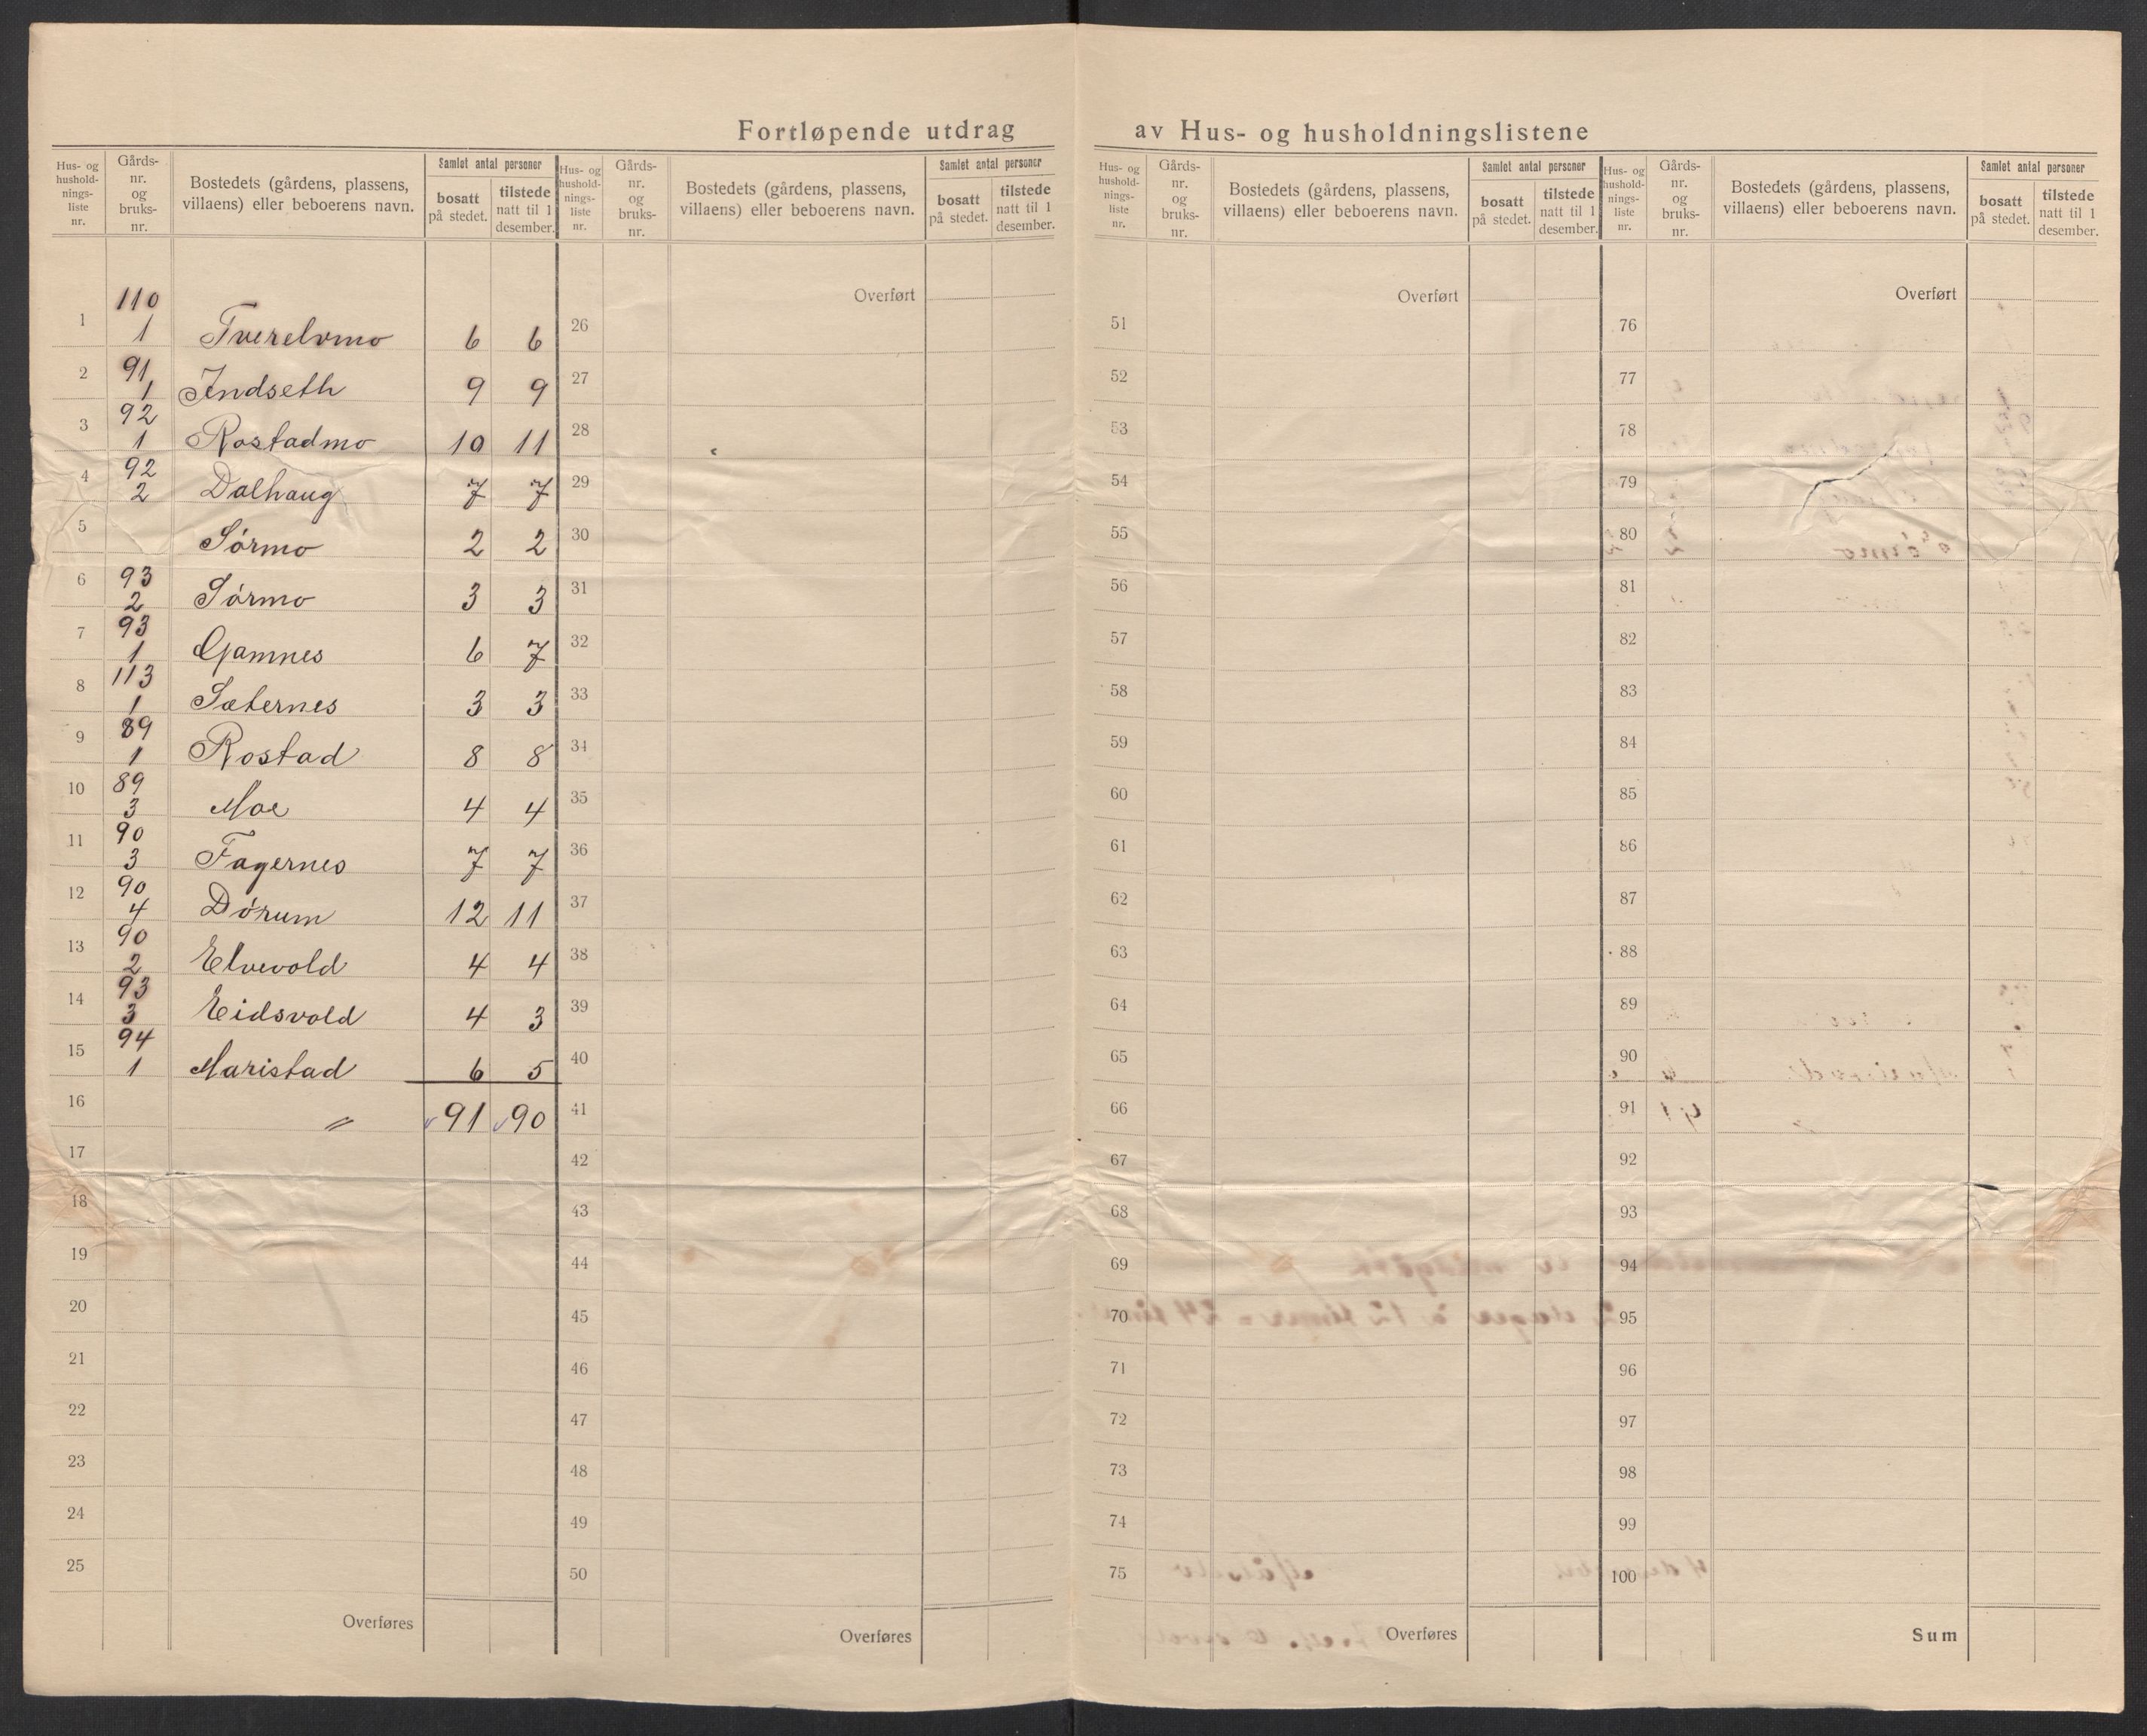 Fortløpende utdrag av Hus- og husholdningslistene
Hus- og husholdningsliste nr. | Gårdsnr. og bruksnr. | Bostedets (gårdens, plassens, villaens) eller beboerens navn. | Samlet antal personer | bosatt på stedet. | tilstede natt til 1 desember.
1 | 110 1 | Tverelvmo | 6 | 6
2 | 91 1 | Indseth | 9 | 9
3 | 92 1 | Rostadmo | 10 | 11
4 | 92 2 | Dalhaug | 7 | 7
5 | Sórmo | 2 | 2
6 | 93 2 | Sórmo | 3 | 3
7 | 93 1 | Gamnes | 6 | 7
8 | 113 1 | Sæternes | 3 | 3
9 | 89 1 | Rostad | 8 | 8
10 | 89 3 | Moe | 4 | 4
11 | 90 3 | Fagernes | 7 | 7
12 | 90 4 | Dórum | 12 | 11
13 | 90 2 | Elvevold | 4 | 4
14 | 93 3 | Eidsvold | 4 | 3
15 | 94 1 | Maristad | 6 | 5
16 | 〃 | 91 | 90
17
18
19
20
21
22
23
24
25
Overføres
Hus- og husholdningsliste nr. | Gårdsnr. og bruksnr. | Bostedets (gårdens, plassens, villaens) eller beboerens navn. | Samlet antal personer | bosatt på stedet. | tilstede natt til 1 desember.
Overført
26
27
28
29
30
31
32
33
34
35
36
37
38
39
40
41
42
43
44
45
46
47
48
49
50
Overføres
Hus- og husholdningsliste nr. | Gårdsnr. og bruksnr. | Bostedets (gårdens, plassens, villaens) eller beboerens navn. | Samlet antal personer | bosatt på stedet. | tilstede natt til 1 desember.
Overført
51
52
53
54
55
56
57
58
59
60
61
62
63
64
65
66
67
68
69
70
71
72
73
74
75
Overføres
Hus- og husholdningsliste nr. | Gårdsnr. og bruksnr. | Bostedets (gårdens, plassens, villaens) eller beboerens navn. | Samlet antal personer | bosatt på stedet. | tilstede natt til 1 desember.
Overført
76
77
78
79
80
81
82
83
84
85
86
87
88
89
90
91
92
93
94
95
96
97
98
99
100
Sum